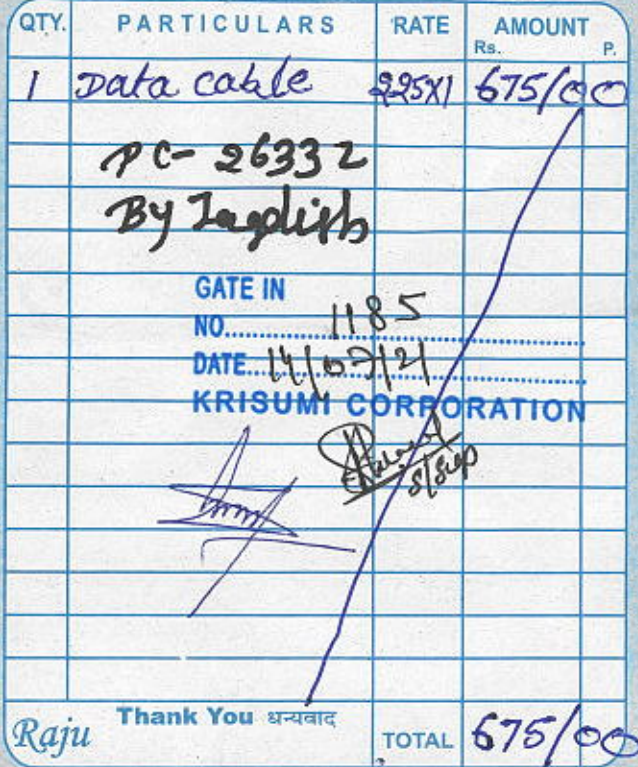 QTY. PARTICULARS RATE AMOUNT
Rs. P.
1 Data cable 225X1 675/00
PC- 26332
By Jagdish
GATE IN
NO. 1185
DATE 14/07/21
KRISUMI CORPORATION
Thank You धन्यवाद
Raju TOTAL 675/00